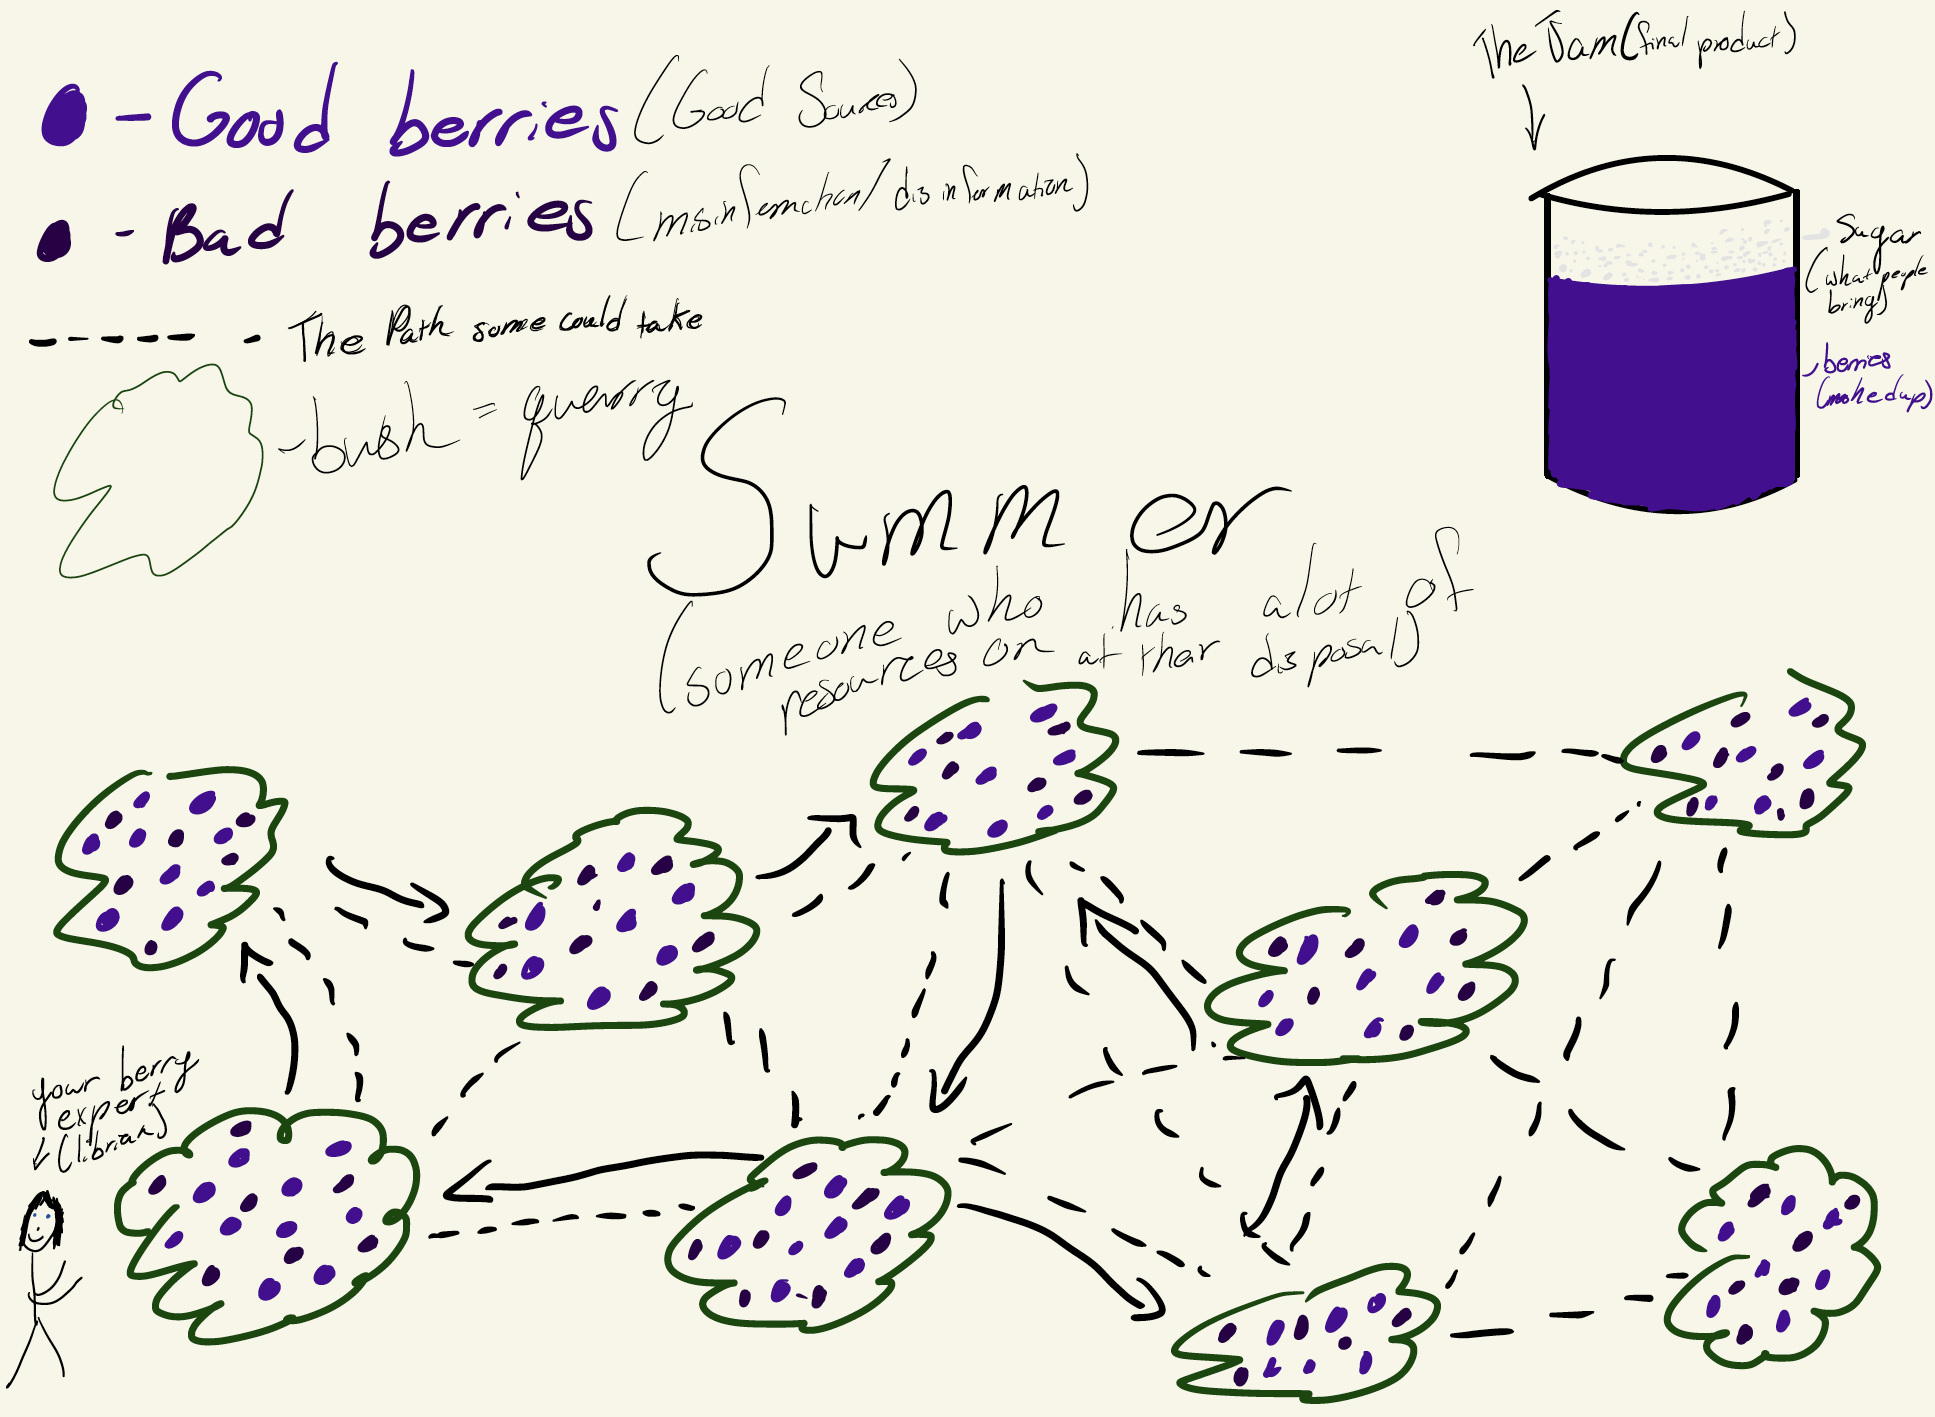 - Good berries (Good Sources)
- Bad berries (misinfemchan/disinformation)
- The Path some could take
- bush = querry
The Jam (final product)
Sugar
(what people
bring)
berries
(moshed up)
Summer
(someone who has alot of
resources on at ther disposal)
your berry
expert
(librian)